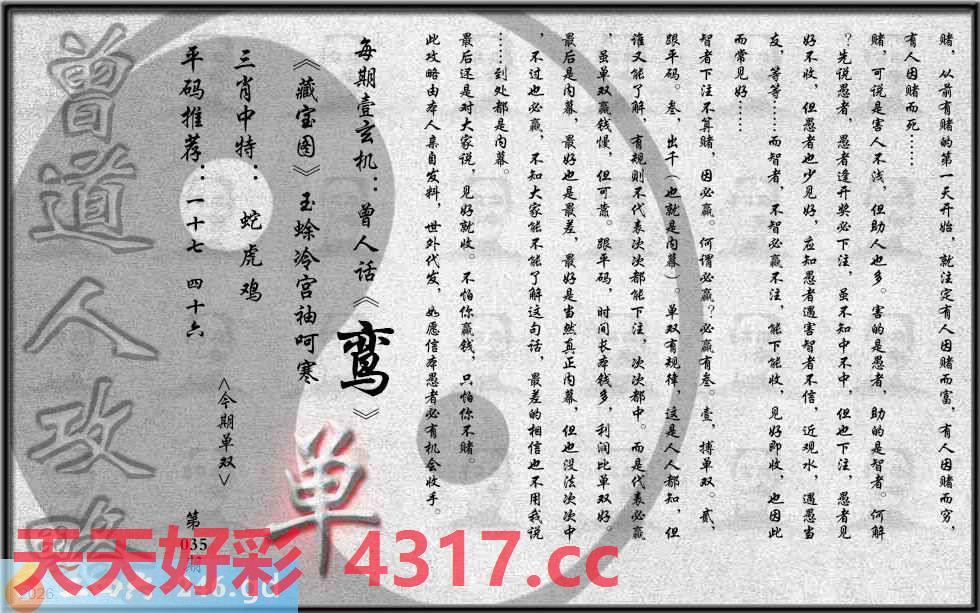 赌，从前有赌的第一天开始，就注定有人因赌而富，有人因赌而穷，
有人因赌而死……
赌，可说是害人不浅，但助人也多。害的是愚者，助的是智者。何解
？先说愚者，愚者逢开奖必下注，虽不知中不中，但也下注，愚者见
好不收，但愚者也少见好，应知愚者遇害智者不信，近观水，遇愚当
友，等等……而智者，不智必赢不注，能下能收，见好即收，也因此
而常见好……
智者下注不算赌，因必赢。何谓必赢？必赢有叁。壹，搏单双。贰，
跟平码。叁，出千（也就是内幕）。单双有规律，这是人人都知，但
谁又能了解，有规则不代表次次都能下注，次次都中。而是代表必赢
，虽单双赢钱慢，但可蓄。跟平码，时间长本钱多，利润比单双好。
最后是内幕，最好也是最差，最好是当然真正内幕，但也没法次次中
，不过也必赢，不知大家能不能了解这句话，最差的相信也不用我说
……到处都是内幕。
最后还是对大家说，见好就收。不怕你赢钱，只怕你不赌。
此攻略由本人亲自发料，世外代发，如愿信本愚者必有机会收手。
每期壹玄机：曾人话《鸾》
《藏宝图》玉蜍冷宫袖呵寒
三肖中特：蛇虎鸡
平码推荐：一十七 四十六
<今期单双>
单
第
035
期
曾道人攻略
天天好彩 4317.cc
246.gd
2026